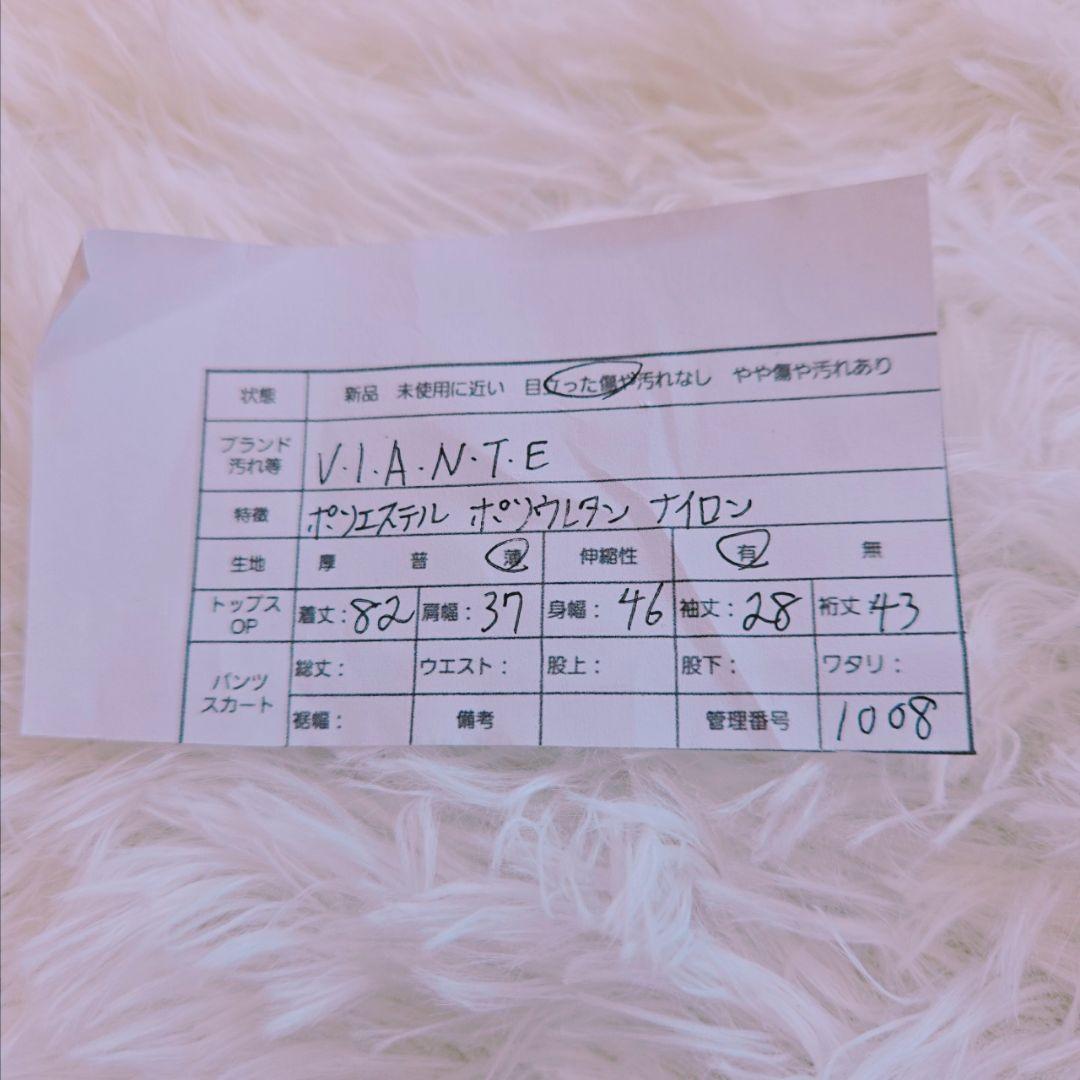 状態 新品 未使用に近い 目立った傷や汚れなし やや傷や汚れあり
ブランド
汚れ等 V.I.A.N.T.E
特徴 ポリエステル ポリウレタン ナイロン
生地 厚 普 薄 伸縮性 有 無
トップス
OP 着丈:82 肩幅:37 身幅:46 袖丈:28 裄丈:43
パンツ
スカート 総丈: ウエスト: 股上: 股下: ワタリ:
裾幅: 備考 管理番号 1008